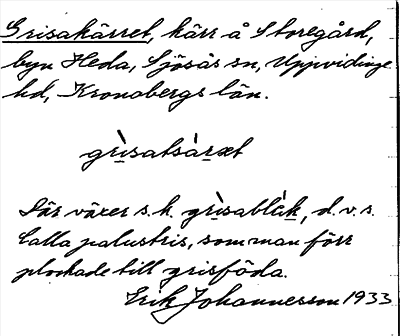 Grisakärret, kärr å Storegård,
byn Heda, Sjösås sn, Uppvidinge
hd, Kronobergs län.
grìsatsàrət
Där växer s.k. grìsablàk, d.v.s.
Calla palustris, som man förr
plockade till grisföda.
Erik Johannesson 1933